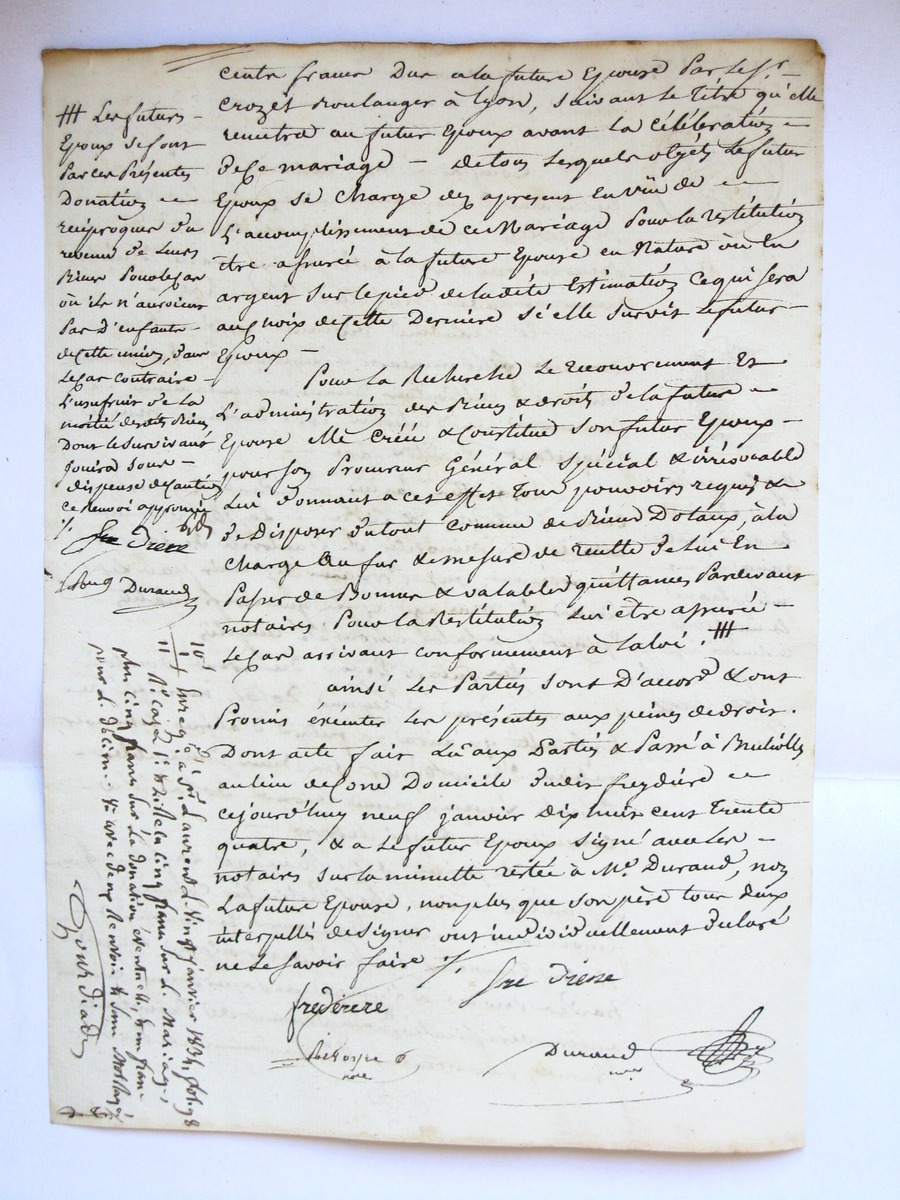 cents francs Dus a la future Epouse Par le Sr.
Crozet Boulanger à Lyon, suivant le Titre qu'elle
remettra au futur Epoux avant la célébration
de Ce mariage – de tous lesquels objets le futur
Epoux se charge dez apresent En vüe de
L'accomplissement de ce Mariage Pour la restitution
être assurée à la future Epouse en Nature ou En
argent sur le pied de la dite Estimation Ce qui sera
au choix de Cette Dernière si elle survit le futur
Epoux –
Pour la Recherche le recouvrement Et
L'administration des Biens & droits de la future
Epouse Elle créé & Constitue son futur Epoux
pour son Procureur Général Spécial & irrévocable
Lui donnant a cet effet Tous pouvoirs requis &
de Disposer du tout comme de Biens Dotaux, à la
charge Au fur & mesure de recette de lui En
Passer de Bonnes & valables quittances Pardevant
notaires Pour la Restitution lui être assurée
le cas arrivant conformement à la loi. #
ainsi Les Parties sont D'accord & ont
Promis éxécuter les présentes aux peines de droit.
Dont acte fait Lû aux Parties & Passé à
au lieu de Domicile dudit freydière
Cejourd'huy neuf janvier dix huit cent Trente
quatre, & a Le futur Epoux signé avec les
notaires sur la minutte restée à Me. Durand, non
La future Epouse, non plus que son père Tous deux
interpellés de signer ont individuellement déclaré
ne le savoir faire ./.
Durand
# Les futurs
Epoux se font
Par ces Présentes
Donation
réciproque du
revenu de Leurs
Biens Pour le cas
où ils n'auroient
Pas D'enfants
de Cette union, dans
Le cas contraire
L'usufruit de la
moitié desdits Biens
Dont le survivant
jouira sous
dispense de caution
ce Renvoi approuvé
./.
Durand
Enreg. à St. Laurent le Vingt janvier 1834, fol. 98
Ro. Case 1re & 2 cinq francs sur le Mariage,
plus cinq francs sur la donation éventuelle, dem franc
pour le Décime. & avec deux Renvois & sans Mot rayé